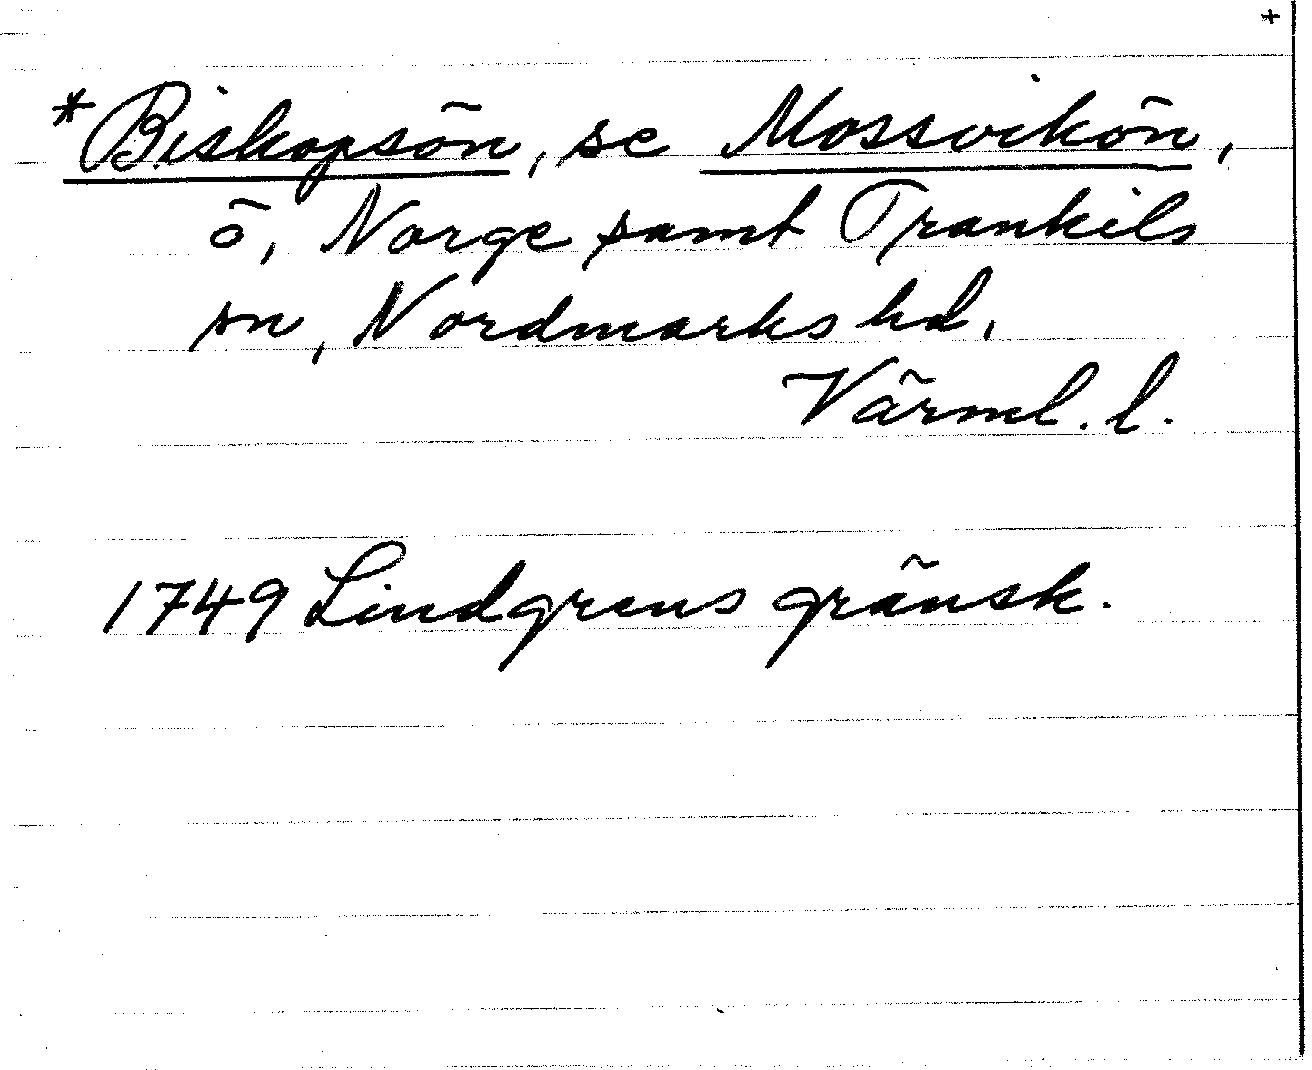 +
*Biskopsön, se Mossvikön,
ö, Norge samt Trankils
sn, Nordmarks hd,
Värml. l.
1749 Lindgrens gränsk.